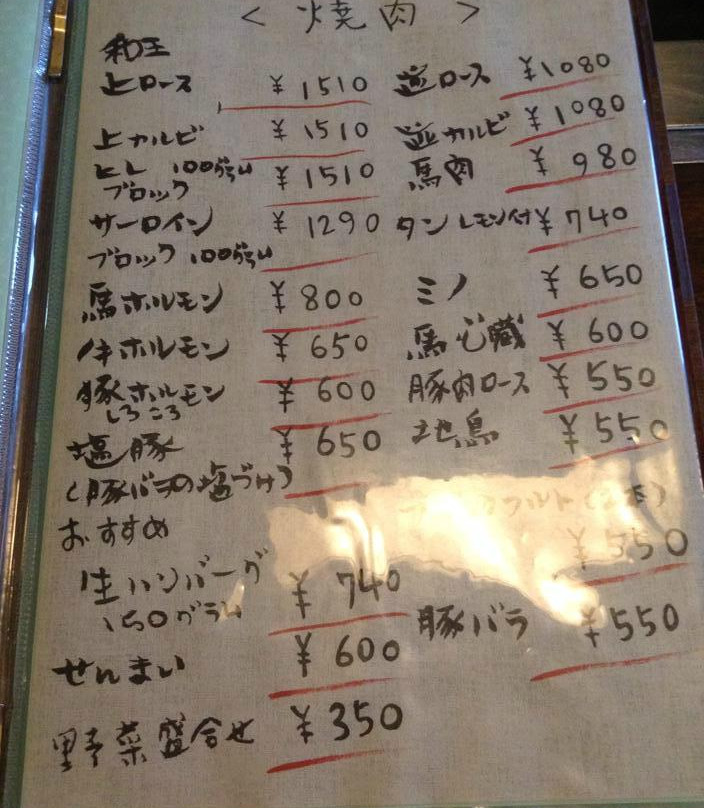 < 焼肉 >
和王
上ロース ¥1510
上カルビ ¥1510
ヒレ 100グラム
ブロック ¥1510
サーロイン ¥1290
ブロック 100グラム
馬ホルモン ¥800
牛ホルモン ¥650
豚ホルモン ¥600
しろころ
塩豚 ¥650
(豚バラの塩づけ)
おすすめ
生ハンバーグ ¥740
150グラム
せんまい ¥600
野菜盛合せ ¥350
並ロース ¥1080
並カルビ ¥1080
馬肉 ¥980
タン レモン付 ¥740
ミノ ¥650
馬心臓 ¥600
豚肉ロース ¥550
地鳥 ¥550
フルト(2本)
¥550
豚バラ ¥550